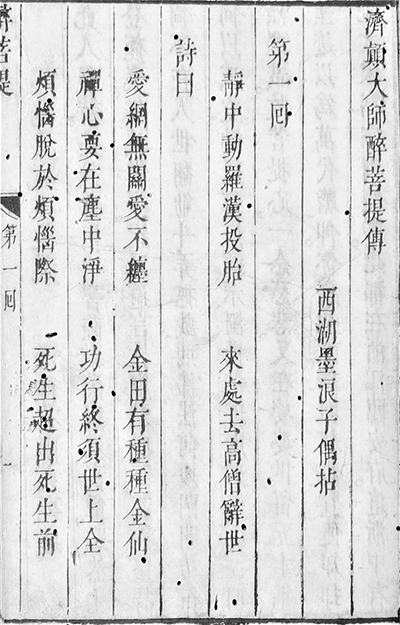 濟顛大師醉菩提傳
西湖墨浪子偶拈
第一回
靜中動羅漢投胎　來處去高僧辭世
詩曰
愛網無關愛不纏　金田有種種金仙
禪心要在塵中淨　功行終須世上全
煩惱脫於煩惱際　死生超出死生前
菩提　第一回　一